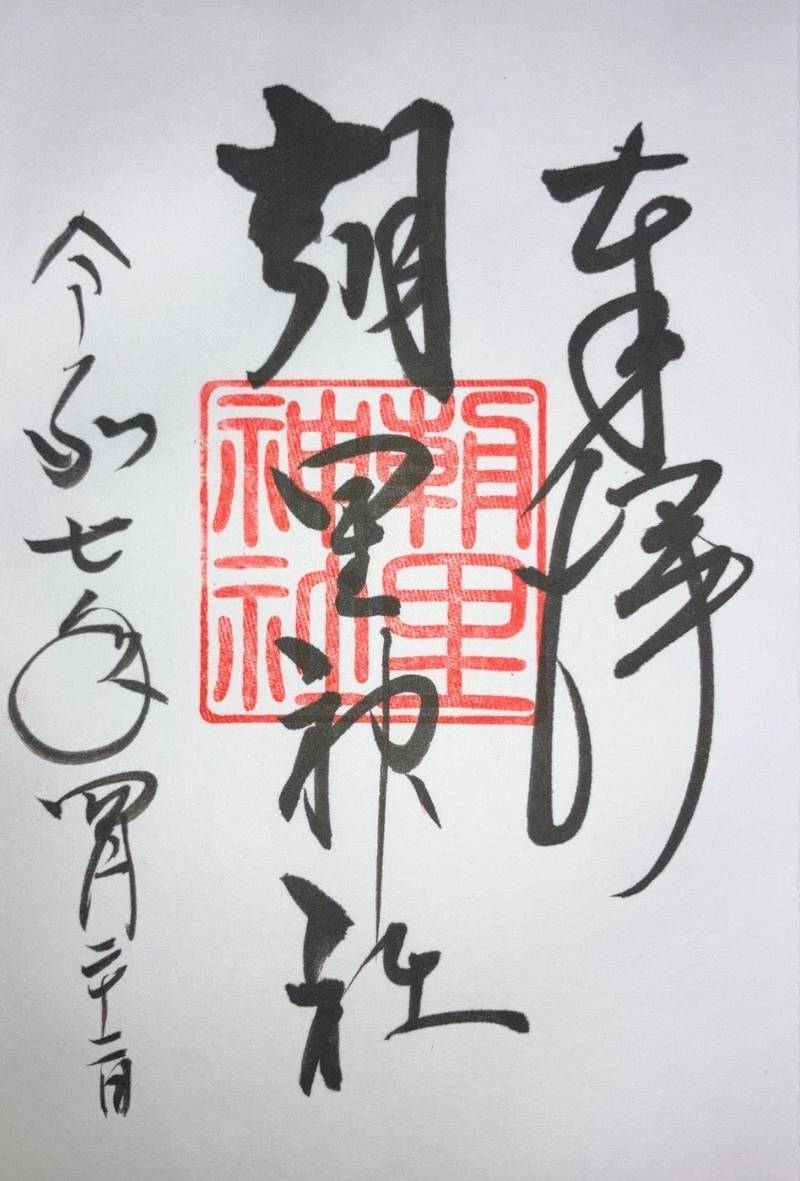 奉拝
朝里神社
朝里
神社
令和七年四月二十二日